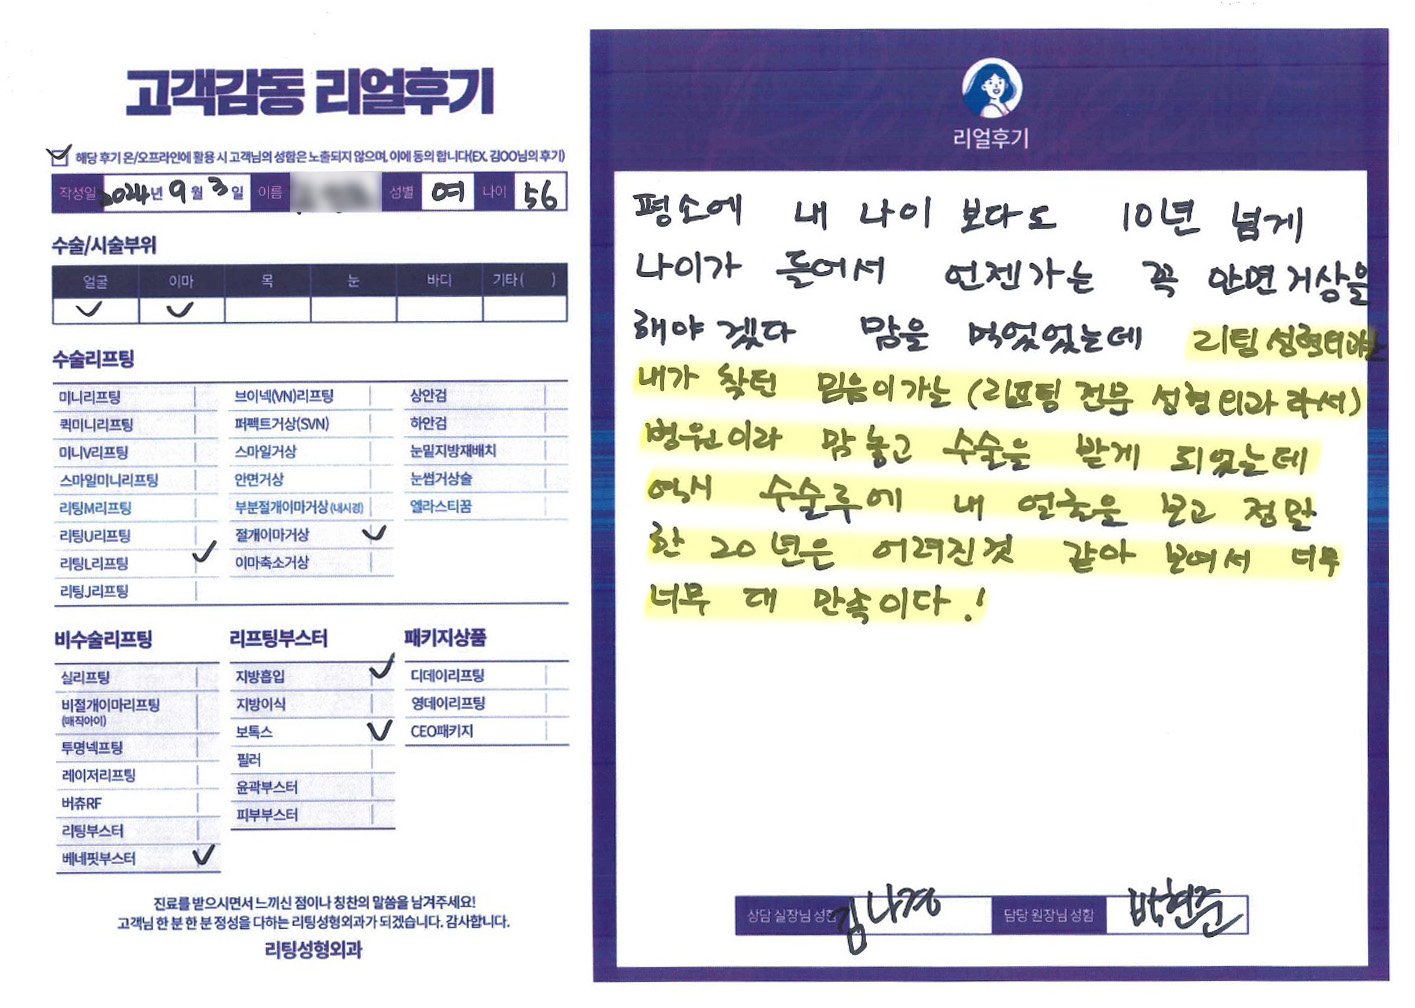 고객감동 리얼후기
해당 후기 온/오프라인에 활용 시 고객님의 성함은 노출되지 않으며, 이에 동의 합니다(EX. 김OO님의 후기)
작성일 2024년 9월 3일 이름 성별 여 나이 56
수술/시술부위
얼굴 이마 목 눈 바디 기타( )
수술리프팅
미니리프팅 브이넥(VN)리프팅 상안검
퀵미니리프팅 퍼펙트거상(SVN) 하안검
미니V리프팅 스마일거상 눈밑지방재배치
스마일미니리프팅 안면거상 눈썹거상술
리팅M리프팅 부분절개이마거상(내시경) 엘라스티꿈
리팅U리프팅 절개이마거상
리팅L리프팅 이마축소거상
리팅J리프팅
비수술리프팅 리프팅부스터 패키지상품
실리프팅 지방흡입 디데이리프팅
비절개이마리프팅 지방이식 영데이리프팅
(매직아이)
투명넥프팅 보톡스 CEO패키지
레이저리프팅 필러
버츄RF 윤곽부스터
리팅부스터 피부부스터
베네핏부스터
진료를 받으시면서 느끼신 점이나 칭찬의 말씀을 남겨주세요!
고객님 한 분 한 분 정성을 다하는 리팅성형외과가 되겠습니다. 감사합니다.
리팅성형외과
리얼후기
평소에 내 나이 보다도 10년 넘게
나이가 들어서 언젠가는 꼭 안면거상을
해야 겠다 맘을 먹었었는데 리팅성형외과는
내가 찾던 믿음이가는 (리프팅 전문 성형외과라서)
병원이라 맘 놓고 수술을 받게 되었는데
역시 수술후에 내 얼굴을 보고 정말
한 20년은 어려진것 같아 보여서 너무
너무 대 만족이다.!
상담 실장님 성함 김나경 담당 원장님 성함 박현준